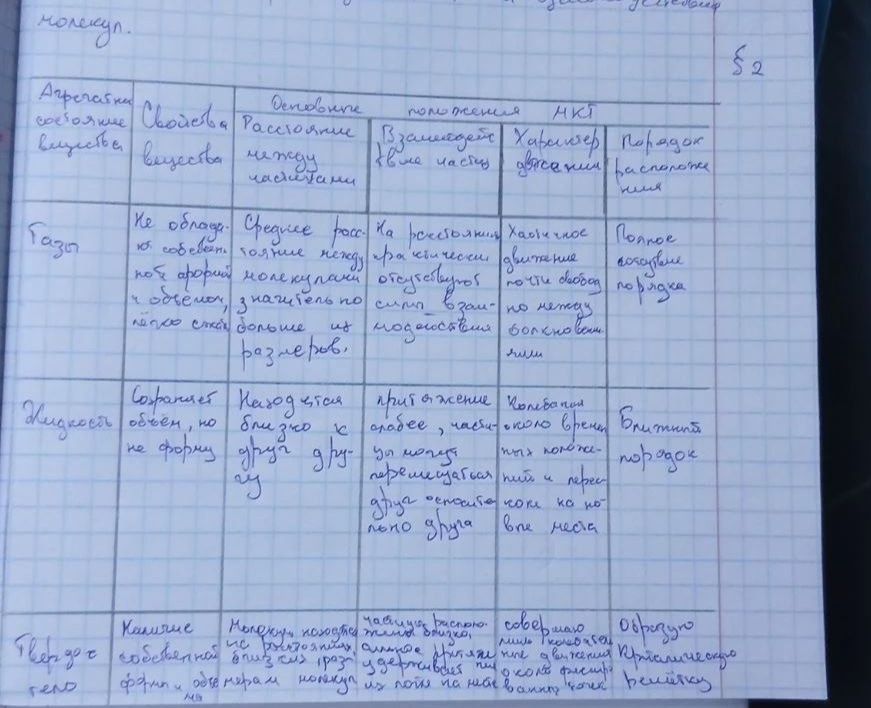 молекул.
§2
Агрегатна состояние вещества
Свойства вещества
Основные положения МКТ
Расстояние между частицами
Взаимодейс твие частиц
Характер движения
Порядок расположе ния
Газы
Не облада-
ют собствен
ной формой
и объемом,
легко сжим
Среднее расс-
тояние между
молекулами
значительно
больше их
размеров.
На расстоянии
практически
отсутствуют
силы взаи-
модействия
Хаотичное
движение
почти свобод
но между
столкновени
ями
Полное
отсутствие
порядка
Жидкость
Сохраняет
объём, но
не форму
Находятся
близко к
друг дру-
гу
притяжение
слабее, части-
цы могут
перемещаться
друг относите
льно друга
Колебания
около времен
ных положе-
ний и перес-
коки на но-
вые места
Ближний
порядок
Твердое
тело
Наличие
собственной
формы и объе
ма
Молекулы находятся
на расстояниях,
близких разм
мерам молекул
частицы располо-
жены близко,
сильное притяж
удерживает
их почти на месте
совершаю
лишь колебател
ные движения
около фиксир
ванных точек
Образую
Кристалическую
решётку